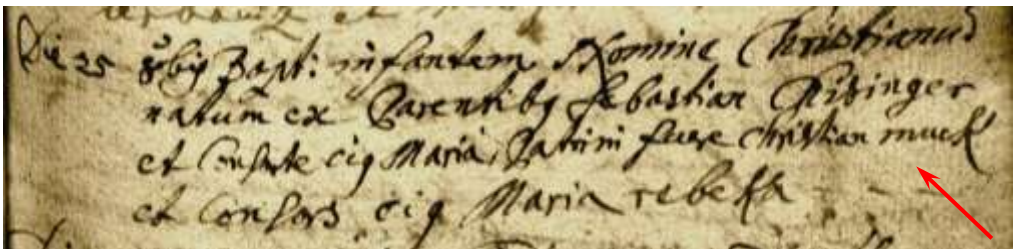 Die 25 8bg Bapt: infantem Nomine Christianus
natum ex Parentibg Sebastian Risinger
et Consorte eig Maria, Patrini fuere Christian muck
et Consors eig Maria rebekka